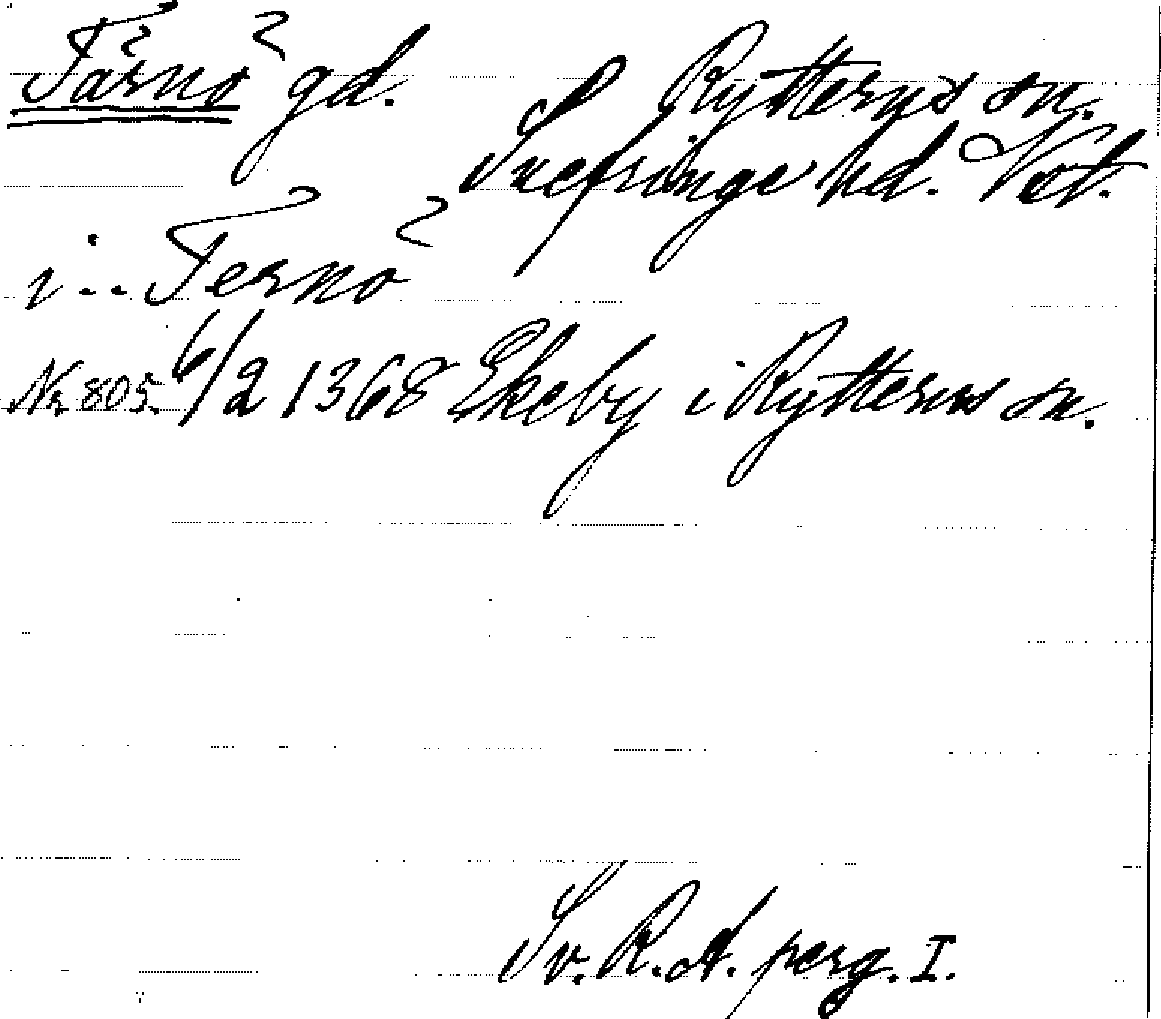 Tärnö gd. Rytterns sn.
Snefringe hd. Vstm.
i .. Ternö
Nr 805. 6/2 1368 Ekeby i Rytterns sn.
Sv. R. A. perg. I.